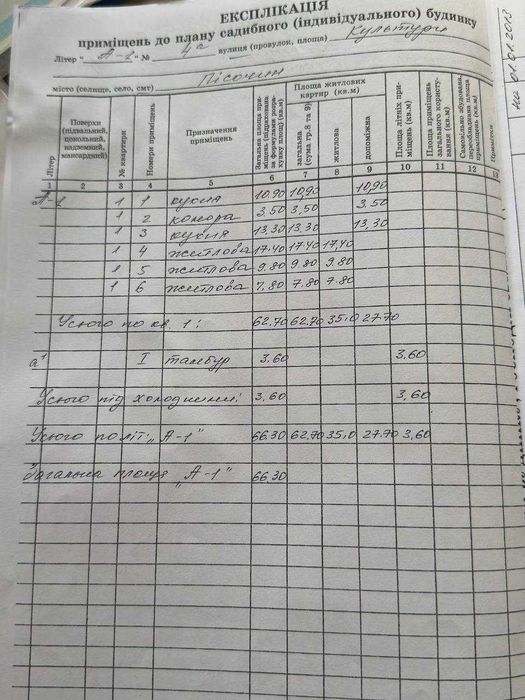 ЕКСПЛІКАЦІЯ
приміщень до плану садибного (індивідуального) будинку
Літер " А-1 " № 4а вулиця (провулок, площа) Культури
місто (селище, село, смт) Пісочин
на 01.01.2013
Літер
Поверхи (підвальний, цокольний, надземний, мансардний)
№ квартири
Номери приміщень
Призначення приміщень
Загальна площа приміщень (підрахована за формулами розрахунку площ) (кв.м)
Площа житлових квартир (кв.м)
загальна (сума гр.8 та 9)
житлова
допоміжна
Площа літніх приміщень (кв.м)
Площа приміщень загального користування (кв.м)
Самовільно збудована, переобладнана площа приміщення (кв.м)
Примітки
1 2 3 4 5 6 7 8 9 10 11 12 13
А-1 1 1 кухня 10,90 10,90 10,90
1 2 комора 3,50 3,50 3,50
1 3 кухня 13,30 13,30 13,30
1 4 житлова 17.40 17.40 17,40
1 5 житлова 9.80 9.80 9.80
1 6 житлова 7,80 7.80 7.80
Усього по кв. 1: 62,70 62,70 35,0 27.70
а¹ I тамбур 3,60 3,60
Усього під холодними: 3,60 3,60
Усього по літ: „А-1" 66.30 62,70 35,0 27.70 3,60
Загальна площа „А-1" 66.30